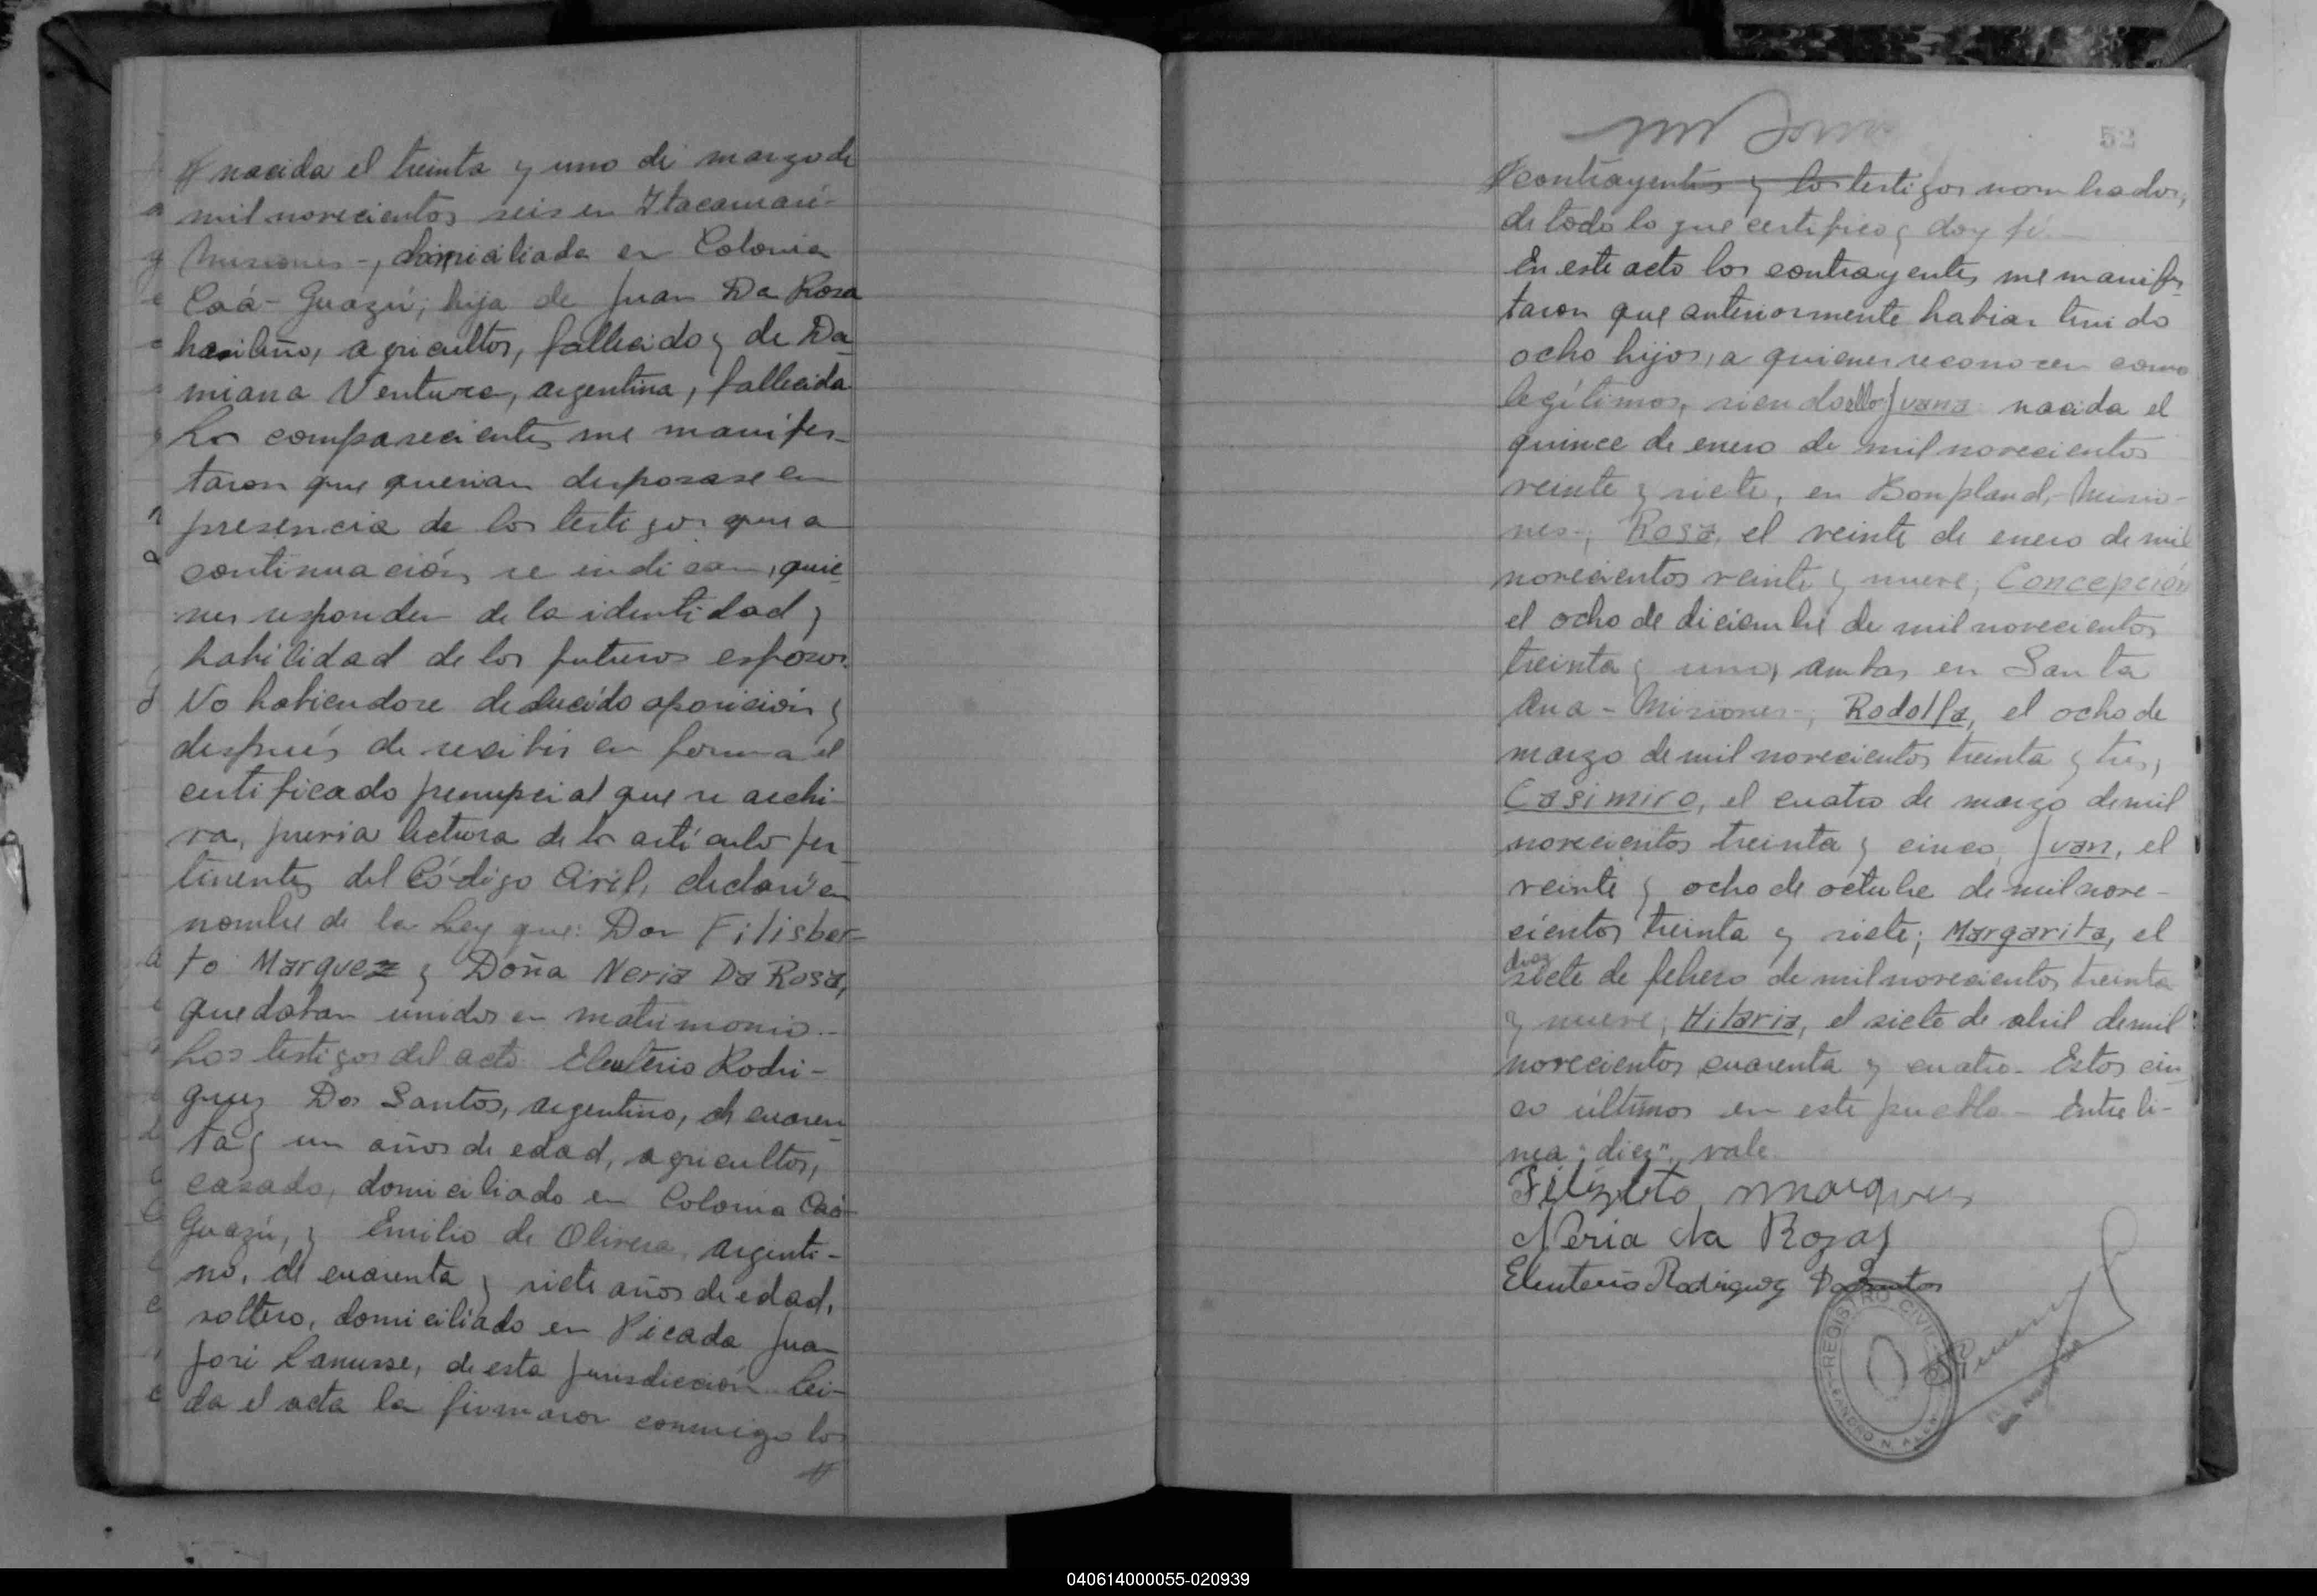 # nacida el treinta y uno de marzo de
mil novecientos seis en Itacaruaré-
Misiones-, domiciliada en Colonia
Caá-Guazú; hija de Juan Da Rosa
brasileño, agricultor, fallecido y de Da-
miana Ventura, argentina, fallecida
Los comparecientes me manifes-
taron que querian desposarse en
presencia de los testigos que a
continuación, se indican, quie-
nes responden de la identidad y
habilidad de los futuros esposos.
No habiendose deducido oposición y
después de recibir en forma el
certificado prenupcial que se archi-
va, previa lectura de los artículo per-
tinentes del Código Civil, declaré en
nombre de la Ley que: Don Filisber-
to Marquez y Doña Neria Da Rosa,
quedaban unidos en matrimonio.-
Los testigos del acto Eleuterio Rodri-
guez Dos Santos, argentino, de cuaren-
ta y un años de edad, agricultor,
casado, domiciliado en Colonia Caá-
Guazú, y Emilio de Olivera, argenti-
no, de cuarenta y siete años de edad,
soltero, domiciliado en Picada Juan
José Lanusse, de esta jurisdicción. Leí-
da el acta la firmaron conmigo los
#
52
# contrayentes y los testigos nombrados,
de todo lo que certifico y doy fé.-
En este acto los contrayentes me manifes-
taron que anteriormente habian tenido
ocho hijos, a quienes reconocen como
legítimos, siendo ellos Juana nacida el
quince de enero de mil novecientos
veinte y siete, en Bonpland,-Misio-
nes-; Rosa, el veinte de enero de mil
novecientos veinte y nueve; Concepción
el ocho de diciembre de mil novecientos
treinta y uno, ambas en Santa
Ana-Misiones-; Rodolfa, el ocho de
marzo de mil novecientos treinta y tres,
Casimiro, el cuatro de marzo de mil
novecientos treinta y cinco, Juan, el
veinte y ocho de octubre de mil nove-
cientos treinta y siete; Margarita, el
diez
siete de febrero de mil novecientos treinta
y nueve; Hilaria, el siete de abril de mil
novecientos cuarenta y cuatro. Estos cin-
co últimos en este pueblo- Entre lí-
nea "diez", vale.
Filizbeto marques
Neria da Rozas
Eleuterio Rodriguez Dosantos
REGISTRO CIVIL
LEANDRO N. ALEM
040614000055-020939